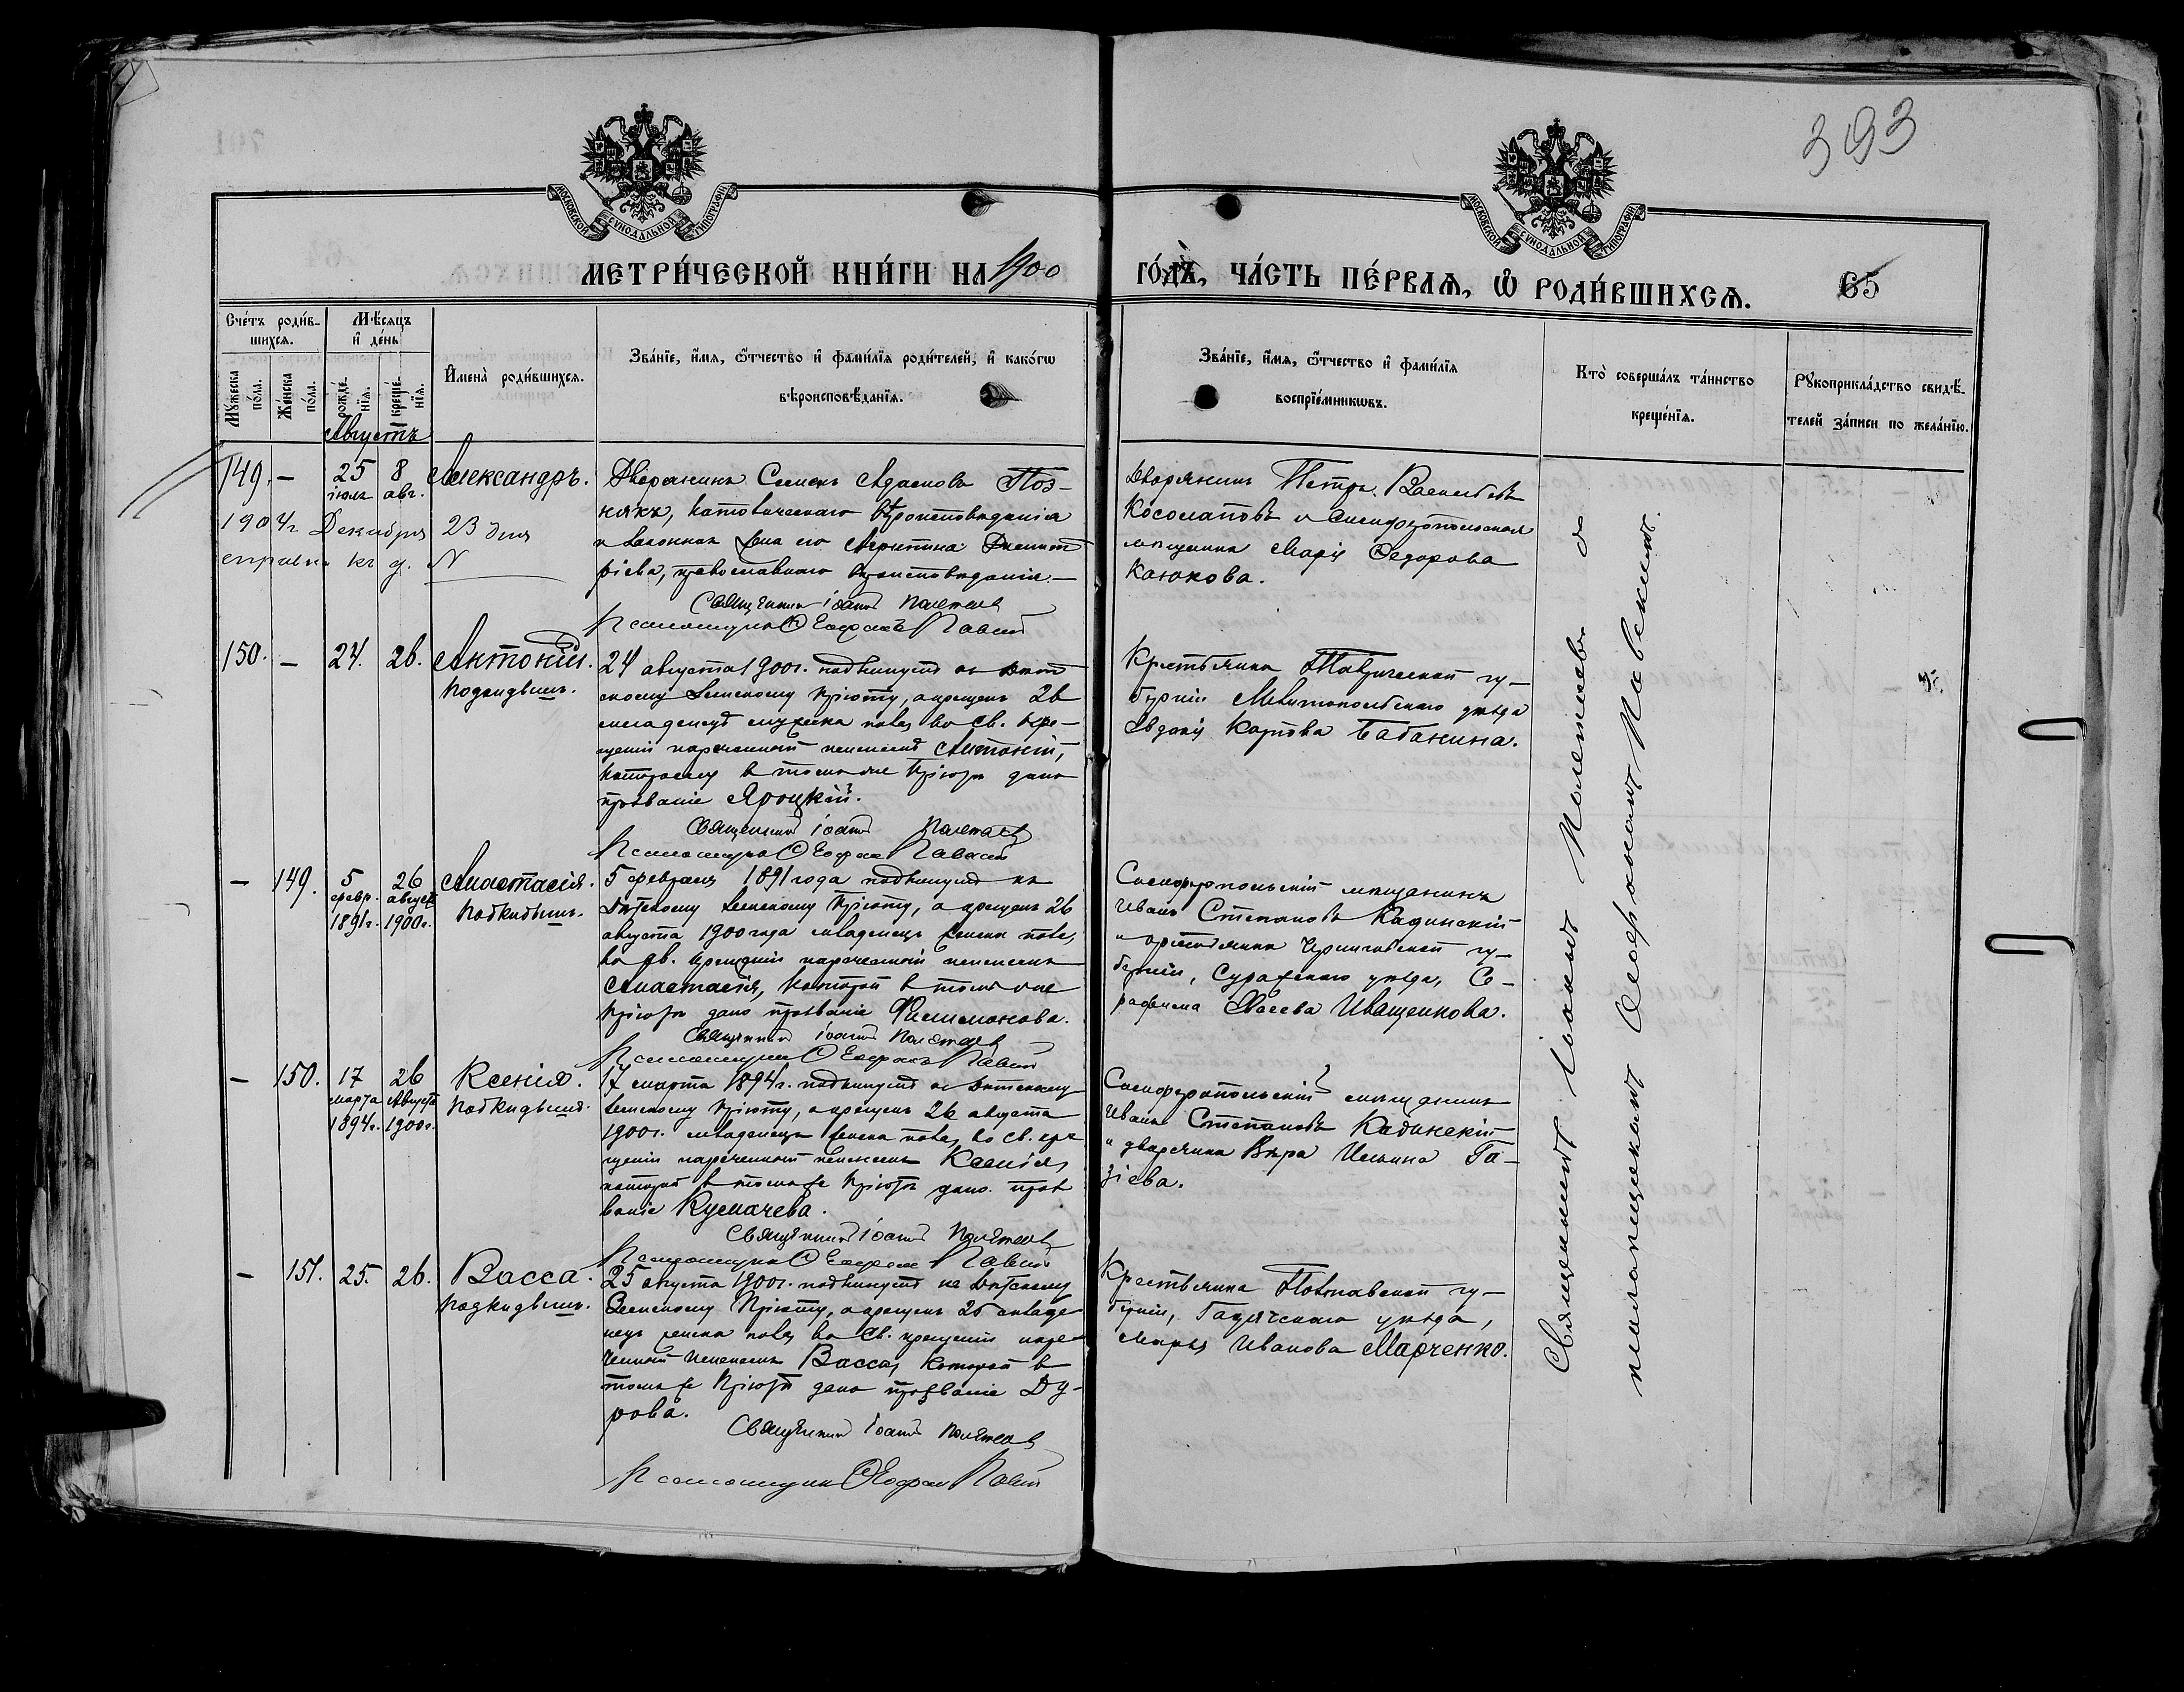 393
МОСКОВСКОЙ СѴНОДАЛЬНОЙ ТИПОГРАФІИ
МОСКОВСКОЙ СѴНОДАЛЬНОЙ ТИПОГРАФІИ
МЕТРИ́ЧЕСКОЙ КНИ́ГИ НА 1900
ГО́ДЪ, ЧА́СТЬ ПЕ́РВАѦ, Ѡ҆ РОДИ́ВШИХСѦ. 65
Сче́тъ роди́в-
шихсѧ.
Мѣ́сѧцъ
и҆ де́нь
Мꙋ́жеска
по́ла.
Же́нска
по́ла.
рожде́-
нїѧ.
креще́-
нїѧ.
И҆мена̀ роди́вшихсѧ.
Зва́нїе, и҆́мѧ, ѻ҆́тчество и҆ фами́лїѧ роди́телей, и҆ како́гѡ
вѣроисповѣ́данїѧ.
Зва́нїе, и҆́мѧ, ѻ҆́тчество и҆ фами́лїѧ
воспрїе́мникѡвъ.
Кто̀ соверша́лъ та́инство
креще́нїѧ.
Рꙋкоприкла́дство свидѣ́-
телей за́писи по жела́нїю.
Августъ
149. – 25 іюля 8 авг. Александръ.
Дворянинъ Семенъ Адамовъ Поз-
някъ, католическаго вѣроисповѣданія
и законная жена его Агрипина Димит
ріева, православнаго вѣроисповѣданія.–
Священникъ Іоаннъ Полетаевъ
Псаломщикъ Ѳеофанъ Павскій
Дворянинъ Петръ Васильевъ
Косолаповъ и Симферопольская
мѣщанка Марія Ѳедорова
Каюкова.
1904 г. Декабря 23 дня
справка къ д. N
150. – 24. 26. Антоній.
подкидышъ.
24 августа 1900г. подкинутъ къ Дѣт
скому Земскому пріюту, а крещенъ 26
младенецъ мужеска пола, во св. кре-
щеніи нареченный именемъ Антоній,
которому въ томъ же Пріютѣ дано
прозваніе Яроцкій.
Священникъ Іоаннъ Полетаевъ
Псаломщикъ Ѳеофанъ Павскій
Крестьянка Таврической гу-
берніи Мелитопольскаго уѣзда
Евдокія Карпова Бабанина.
– 149. 5 февр. 1891г. 26 август. 1900г. Анастасія.
подкидышъ.
5 февраля 1891 года подкинутъ къ
Дѣтскому Земскому Пріюту, а крещенъ 26
августа 1900 года младенецъ женска пола,
во св. крещеніи нареченный именемъ
Анастасія, которой въ томъ же
Пріютѣ дано прозваніе Филимонова.
Священникъ Іоаннъ Полетаевъ
Псаломщикъ Ѳеофанъ Павскій
Симферопольскій мѣщанинъ
Иванъ Степановъ Кадинскій
и крестьянка Черниговской гу-
берніи, Суражскаго уѣзда, Се-
рафима Иващенкова.
– 150. 17 марта 1894г. 26 Август. 1900г. Ксенія.
Подкидышъ.
17 марта 1894г. подкинутъ къ Дѣтскому
Земскому Пріюту, а крещенъ 26 августа
1900г. младенецъ женска пола, во св. кре
щеніи нареченный именемъ Ксенія,
которой въ томъ же Пріютѣ дано проз
ваніе Кумачева.
Священникъ Іоаннъ Полетаевъ
Псаломщикъ Ѳеофанъ Павскій
Симферопольскій мѣщанинъ
Иванъ Степановъ Кадинскій
и дворянка Вѣра Ильина Га-
зіева.
– 151. 25. 26. Васса.
Подкидышъ.
25 августа 1900г. подкинутъ къ Дѣтскому
Земскому Пріюту, а крещенъ 26 младе
нецъ женска пола, во св. крещеніи наре
ченный именемъ Васса, которой въ
томъ же Пріютѣ дано прозваніе Ду-
рова.
Священникъ Іоаннъ Полетаевъ
Псаломщикъ Ѳеофанъ Павскій
Крестьянка Полтавской гу-
берніи, Гадячскаго уѣзда,
Марья Иванова Марченко.
Священникъ Іоаннъ Полетаевъ съ
псаломщикомъ Ѳеофаномъ Павскимъ.